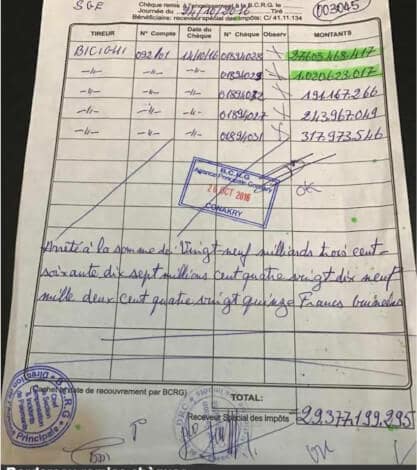 SGE
Chèque remis à l'encaissement à la B.C.R.G. le
Journée du Tiré
003045
Bénéficiaire: receveur spécial des Impôts: C/ 41.11.134
TIREUR N° Compte Date du Chèque N° Chèque Observ MONTANTS
BICIGUI 092/01 14/10/16 01894028 27603.468.417
-//- -//- -//- 01894029 1.020.623.017
-//- -//- -//- 191.167.266
-//- -//- -//- 01894027 243.967.049
-//- -//- -//- 01894031 317.973.546
B.C.R.G
Agence Principale Conakry
20 OCT 2016
CONAKRY
OK
Arrêté à la somme de Vingt-neuf milliards trois cent-
soixante dix sept millions cent quatre vingt dix neuf
mille deux cent quatre vingt quinze Francs Guinéens
(Cachet et date de recouvrement par BCRG)
TOTAL:
Receveur Spécial des Impôts
29.377.199.295